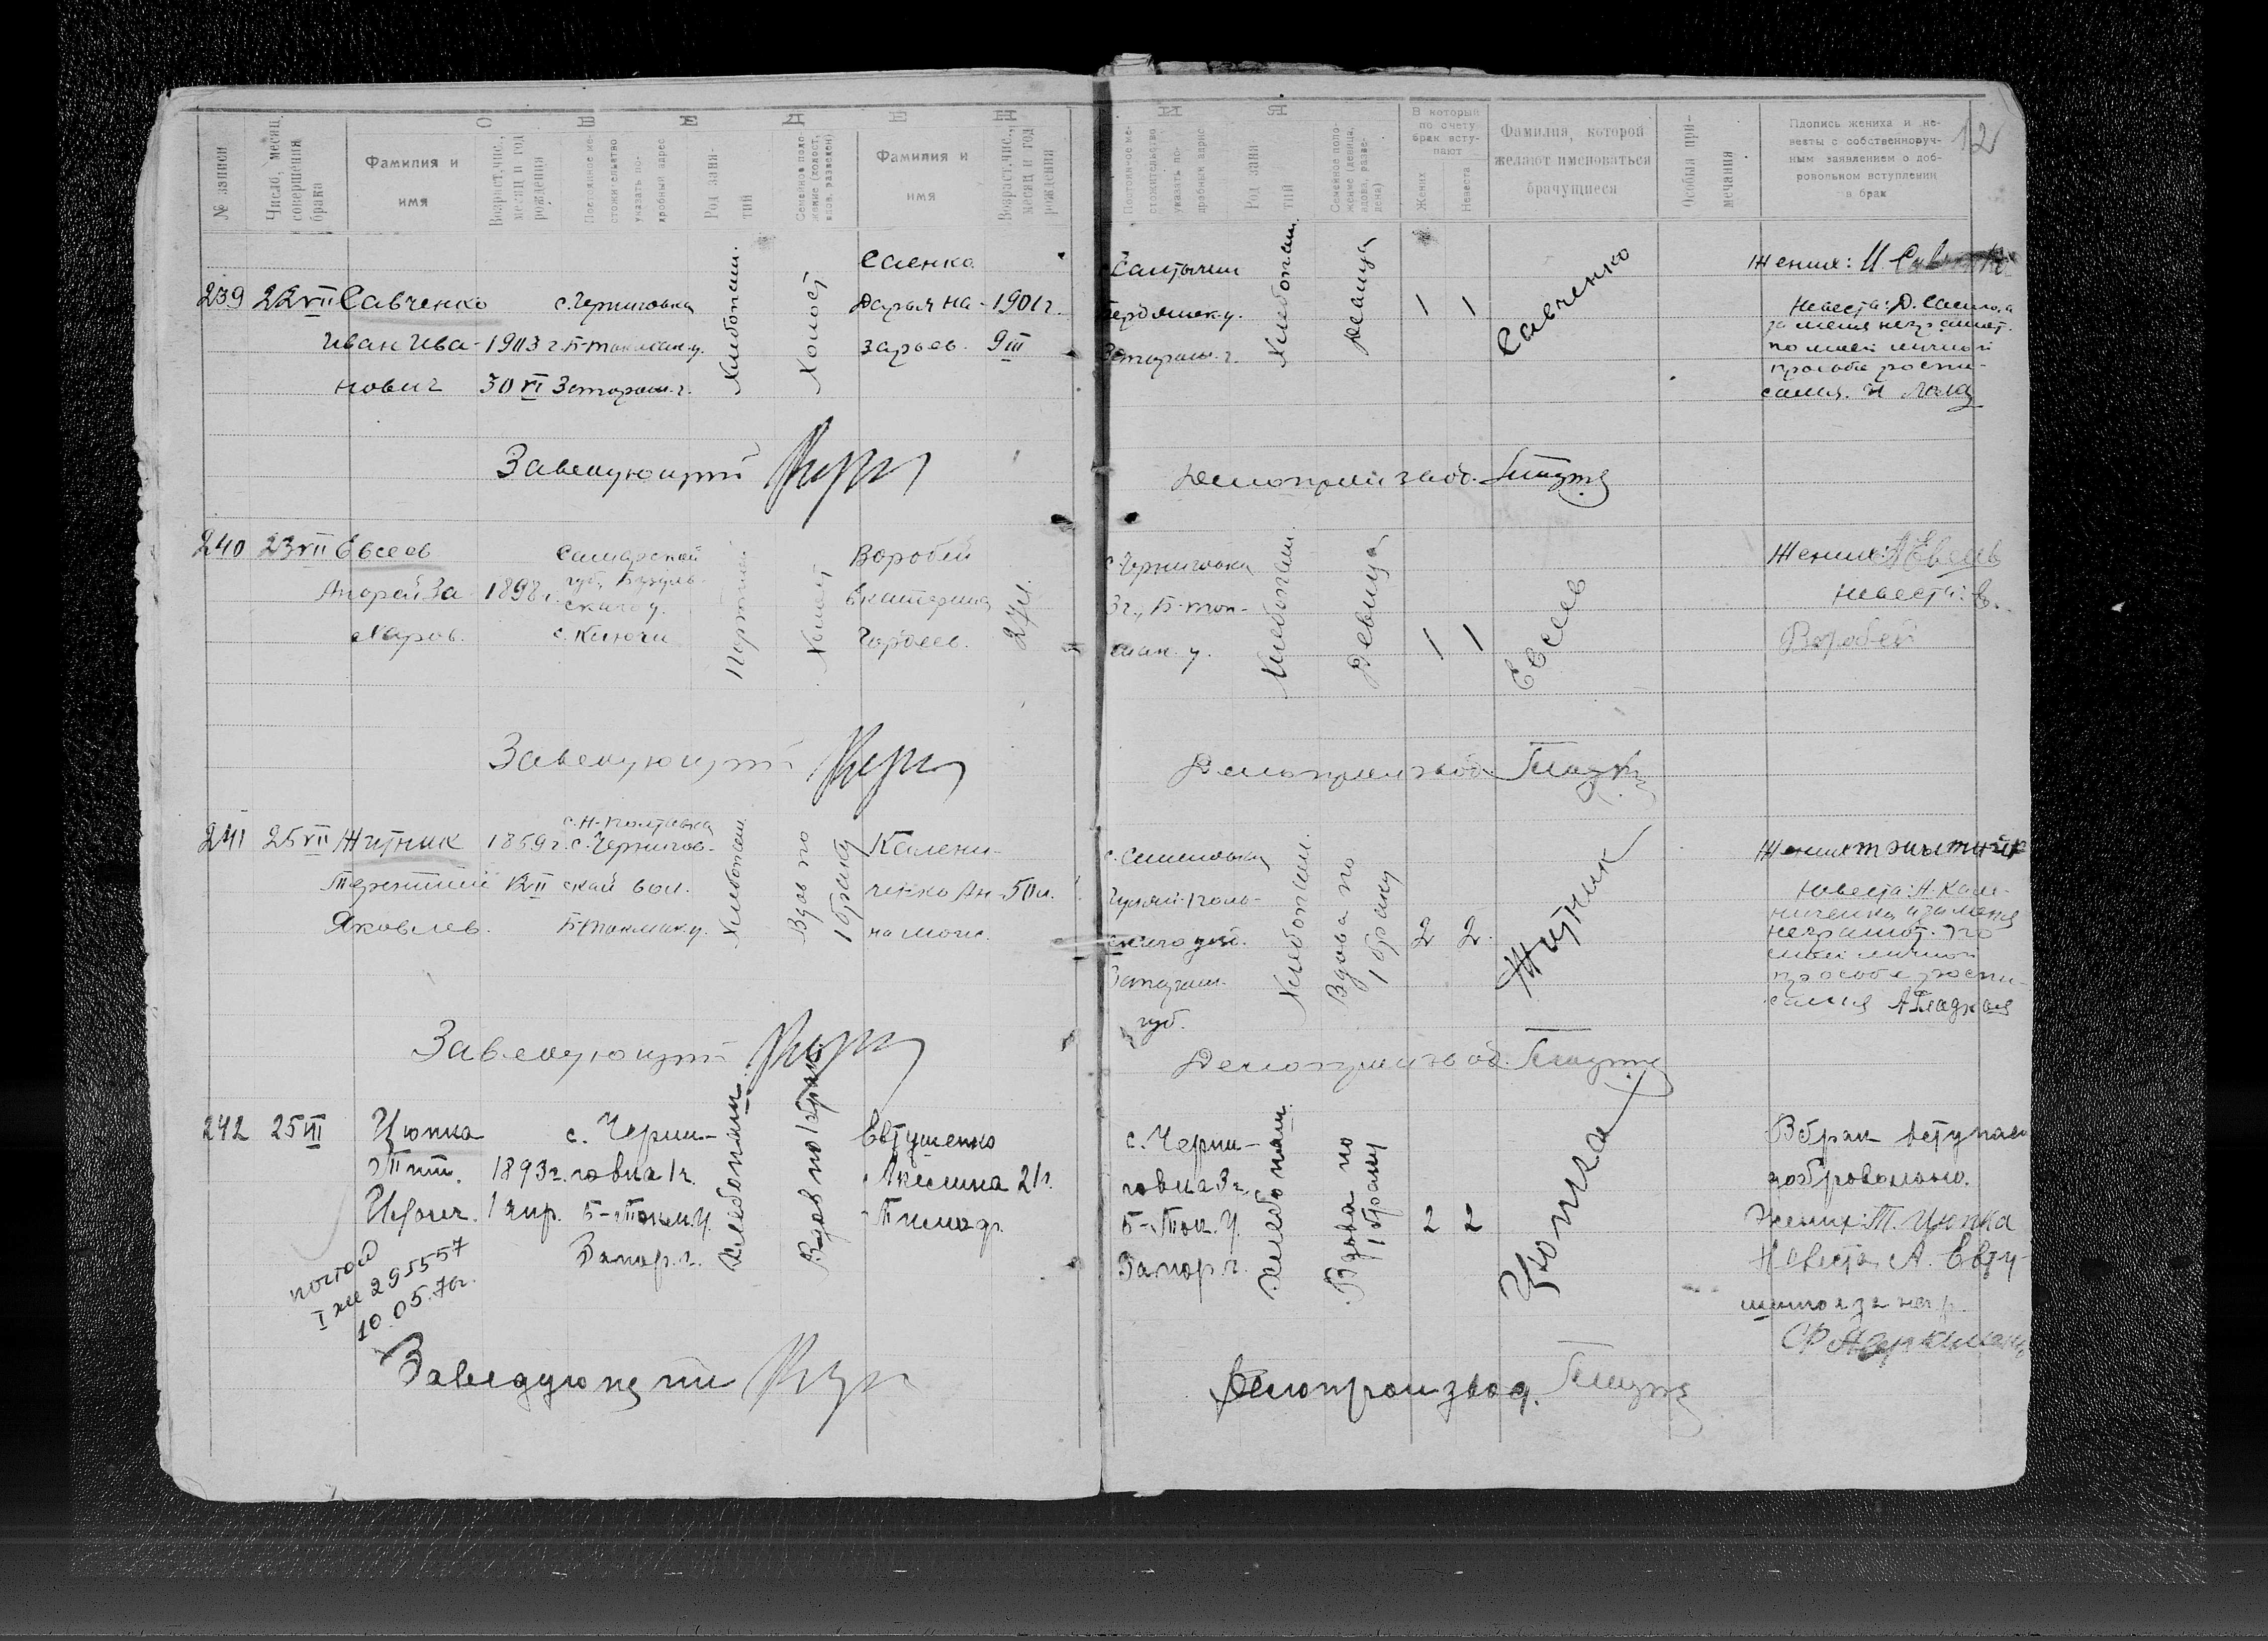 С В Е Д Е Н И Я
№ записи
Число, месяц совершения брака
Фамилия и имя
Возраст, чис., месяц и год рождения
Постоянное местожительство указать подробный адрес
Род занятий
Семейное положение (холост, вдов, разведен)
Фамилия и имя
Возраст, чис., месяц и год рождения
Постоянное местожительство указать подробный адрес
Род занятий
Семейное положение (девица, вдова, разведена)
В которые по счету брак вступают
Жених
Невеста
Фамилия, которой желают именоваться брачущиеся
Особые примечания
Подпись жениха и невесты с собственноручным заявлением о добровольном вступлении в брак
12
239 22 VII Савченко
Иван Ива-
нович
1903 г.
30 VI
с. Черниговка
Б-Токмак. у.
Запорож. г.
Хлебопаш.
Холост
Саенко
Дарья На-
зарьев.
1901 г.
9 III
Салтычии
Бердянск. у.
Запорож. г.
Хлебопаш.
Девица
1 1
Савченко
Жених: И. Савченко
Невеста: Д. Саенко, а
за меня неграмот.
по моей личной
просьбе роспи-
сался.
Заведующий
Делопроизвод.
240 23 VII Евсеев
Андрей За-
харов.
1898 г.
Самарской
губ., Бузуль-
ского у.
с. Ключи
Портной
Холост
Воробей
Екатерина
Гордеев.
27 л.
с. Черниговка
3 г., Б-Ток-
мак. у.
Хлебопаш.
Девица
1 1
Евсеев
Жених: А Евсеев
Невеста: Е.
Воробей
Заведующий
Делопроизвод.
241 25 VII Житник
Терентий
Яковлев.
1859 г.
с. Н-Полтавка
с. Чернигов-
ской вол.
Б-Токмак. у.
Хлебопаш.
Вдов по
1 браку
Калени-
ченко Ан-
на Моис.
50 л.
с. Семеновка
Гуляй-Поль-
ского уезд.
Запорож.
губ.
Хлебопаш.
Вдова по
1 браку
2 2.
Житник
Жених Т Житник
Невеста: А. Кале-
ниченко а за меня
неграмот. по
моей личной
просьбе роспи-
сался А Гладкая
Заведующий
Делопроизвод.
242 25 VII
Цюпка
Тит.
Ифанг.
1893 г.
1 апр.
с. Черни-
говка 1 г.
Б-Токм. У.
Запор. г.
Хлебопаш.
Вдов по 1 браку
Евтушенко
Акилина
Тимоф.
21 г.
с. Черни-
говка 3 г.
Б-Ток. У.
Запор. г.
Хлебопаш.
Вдова по
1 браку
2 2
Цюпка
В брак вступаем
добровольно.
Жених: Т. Цюпка
Невеста А. Евту-
шенко а за негр.
повтор
I ЖС 295557
10.05.70г.
Заведующий
Делопроизвод.